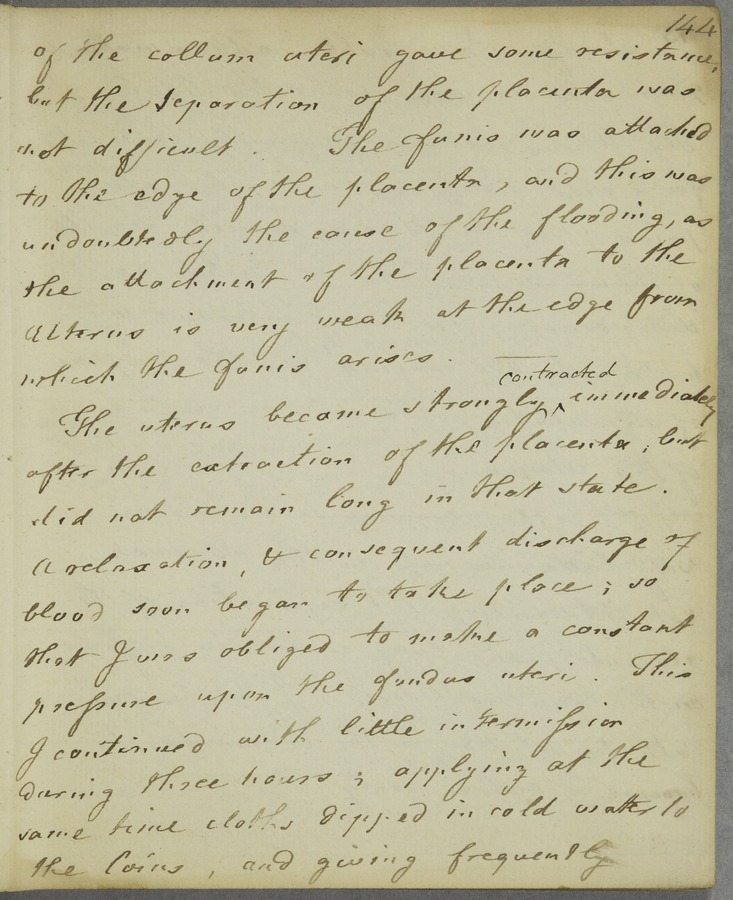 144
of the collum uteri gave some resistance,
but the separation of the placenta was
not difficult. The funis was attached
to the edge of the placenta, and this was
undoubtedly the cause of the flooding, as
the attachment of the placenta to the
Uterus is very weak at the edge from
which the funis arises.
contracted
The uterus became strongly ^ immediately
after the extraction of the placenta; but
did not remain long in that state.
A relaxation, & consequent discharge of
blood soon began to take place; so
that I was obliged to make a constant
pressure upon the fundus uteri. This
I continued with little intermission
during three hours; applying at the
same time cloths dipped in cold water to
the Loins, and giving frequently